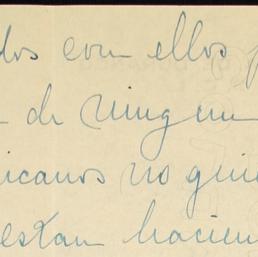 dos con ellos p
de ningun
icanos no quie
estan hacien